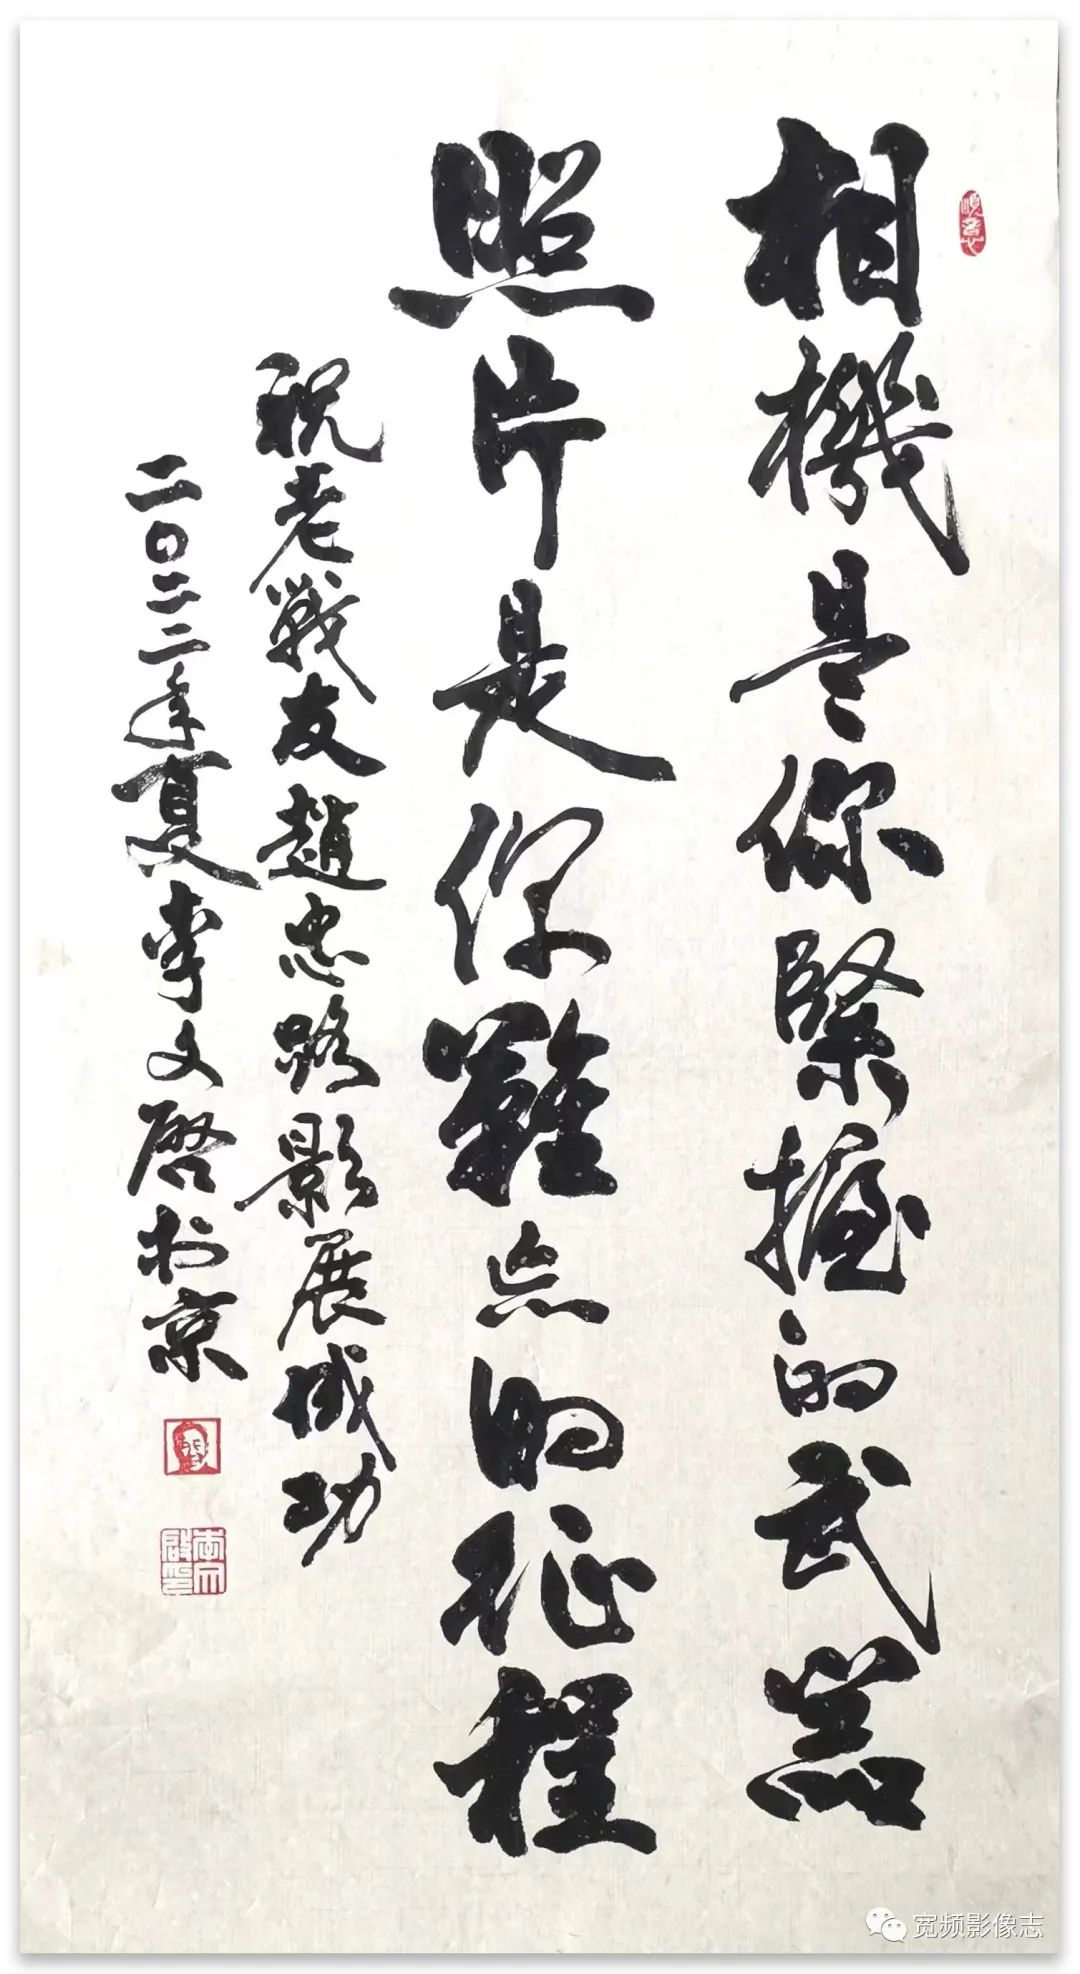 相機是你緊握的武器
照片是你難忘的征程
祝老戰友趙忠路影展成功
二〇二二年夏李文啓於京
李文啟印
宽频影像志